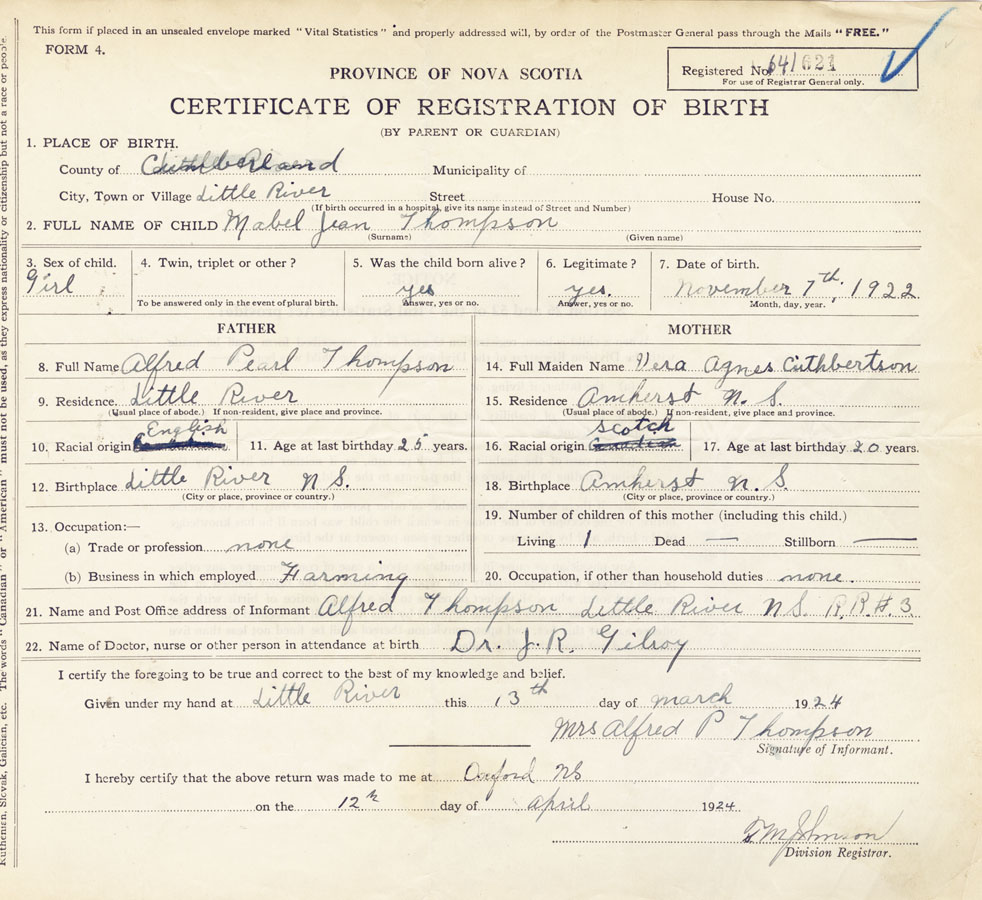 This form if placed in an unsealed envelope marked "Vital Statistics" and properly addressed will, by order of the Postmaster General pass through the Mails "FREE."
FORM 4.
PROVINCE OF NOVA SCOTIA
Registered No. 64/621
For use of Registrar General only.
CERTIFICATE OF REGISTRATION OF BIRTH
(BY PARENT OR GUARDIAN)
1. PLACE OF BIRTH.
County of Cumberland Municipality of
City, Town or Village Little River Street House No.
(If birth occurred in a hospital, give its name instead of Street and Number)
2. FULL NAME OF CHILD Mabel Jean Thompson
(Surname) (Given name)
3. Sex of child. 4. Twin, triplet or other? 5. Was the child born alive? 6. Legitimate? 7. Date of birth.
Girl yes yes. November 7th, 1922
To be answered only in the event of plural birth. Answer, yes or no. Answer, yes or no. Month, day, year.
FATHER MOTHER
8. Full Name Alfred Pearl Thompson 14. Full Maiden Name Vera Agnes Cuthbertson
9. Residence. Little River 15. Residence Amherst N. S.
(Usual place of abode.) If non-resident, give place and province. (Usual place of abode.) If non-resident, give place and province.
English Scotch
10. Racial origin 11. Age at last birthday 25 years. 16. Racial origin Canadian 17. Age at last birthday 20 years.
12. Birthplace Little River N S. 18. Birthplace Amherst N. S.
(City or place, province or country.) (City or place, province or country.)
13. Occupation:— 19. Number of children of this mother (including this child.)
(a) Trade or profession none Living 1 Dead — Stillborn —
(b) Business in which employed Farming 20. Occupation, if other than household duties none.
21. Name and Post Office address of Informant Alfred Thompson Little River N.S. R.R.# 3
22. Name of Doctor, nurse or other person in attendance at birth Dr. J. R. Gilroy
I certify the foregoing to be true and correct to the best of my knowledge and belief.
Given under my hand at Little River this 13th day of march 1924
Mrs Alfred P Thompson
Signature of Informant.
I hereby certify that the above return was made to me at Oxford NS
on the 12th day of April 1924
Johnson
Division Registrar.
Ruthenian, Slovak, Galician, etc. The words "Canadian" or "American" must not be used, as they express nationality or citizenship but not a race or people.